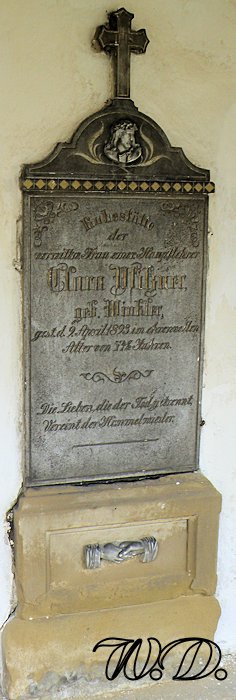 Ruhestätte
der
verwittw. Frau emer. Hauptlehrer
Clara
geb. Winkler,
gest. d. 9. April 1893 im ehrenvollen
Alter von Jahren.
Die Lieben, die der Tod getrennt,
Vereint der Himmel wieder.
W.D.